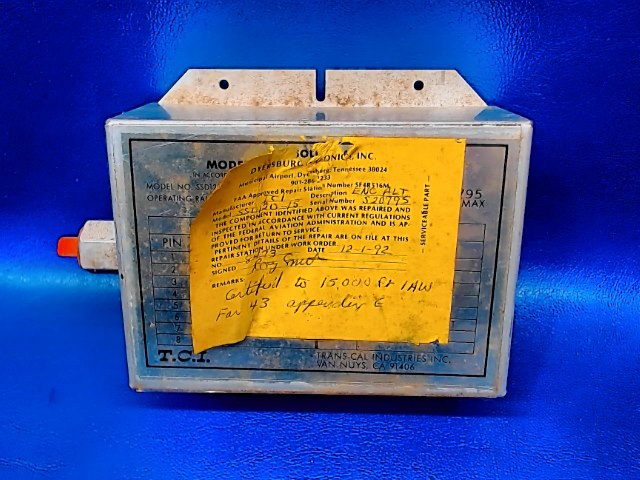 SOLI
MODE
IN ACCOR
MODEL NO. SSD12
OPERATING RA
PIN
1
2
3
4
5
6
7
8
T.C.I.
DYERSBURG AVIONICS, INC.
Municipal Airport, Dyersburg, Tennessee 38024
FAA Approved Repair Station Number
Manufacturer
Description ENC ALT
Model
Serial Number S20795
THE COMPONENT IDENTIFIED ABOVE WAS REPAIRED AND
INSPECTED IN ACCORDANCE WITH CURRENT REGULATIONS
OF THE FEDERAL AVIATION ADMINISTRATION AND IS AP-
PROVED FOR RETURN TO SERVICE.
PERTINENT DETAILS OF THE REPAIR ARE ON FILE AT THIS
REPAIR STATION UNDER WORK ORDER
NO. DATE 12-1-92
SIGNED Roy Smith
REMARKS:
Certified to 15,000 Ft IAW
Far 43 appendix E
—SERVICEABLE PART—
795
MAX
TRANS-CAL INDUSTRIES INC.
VAN NUYS, CA 91406